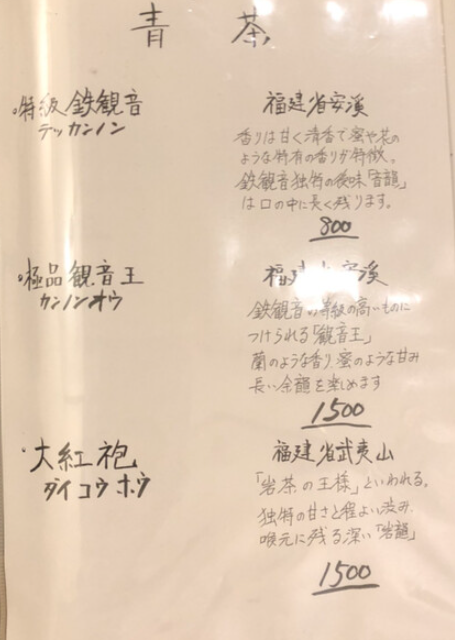 青茶
特級 鉄観音
テッカンノン
福建省安溪
香りは甘く清香で蜜や花の
ような特有の香りが特徴。
鉄観音独特の後味「音韻」
は口の中に長く残ります。
800
極品 観音王
カンノンオウ
福建 安溪
鉄観音の等級の高いものに
つけられる「観音王」
蘭のような香り.蜜のような甘み
長い余韻を楽しめます
1500
大紅袍
ダイコウホウ
福建省武夷山
「岩茶の王様」といわれる。
独特の甘さと程よい渋み.
喉元に残る深い「岩韻」
1500